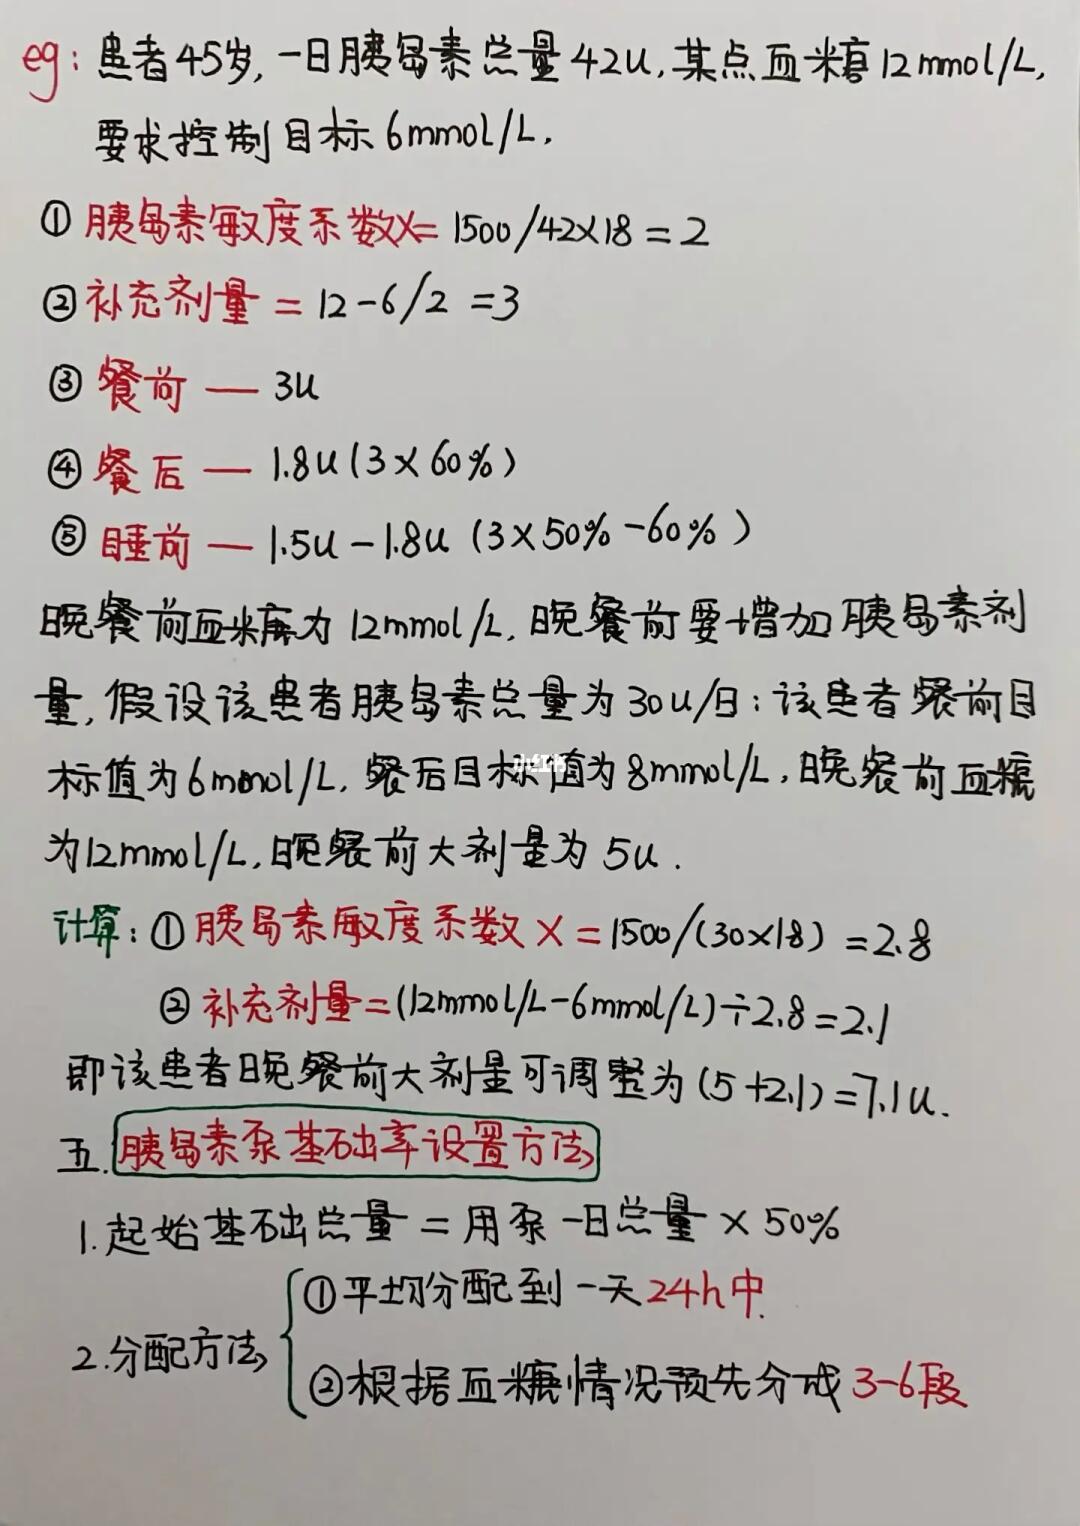 eg: 患者45岁, 一日胰岛素总量42u, 某点血糖12mmol/L,
要求控制目标6mmol/L.
① 胰岛素敏度系数X= 1500/42x18 = 2
② 补充剂量 = 12-6/2 =3
③ 餐前 — 3u
④ 餐后 — 1.8u(3×60%)
⑤ 睡前 — 1.5u-1.8u (3×50%-60%)
晚餐前血糖为12mmol/L, 晚餐前要增加胰岛素剂
量, 假设该患者胰岛素总量为30u/日: 该患者餐前目
标值为6mmol/L, 餐后目标值为8mmol/L, 晚餐前血糖
小红书
为12mmol/L, 晚餐前大剂量为 5u.
计算: ① 胰岛素敏度系数X = 1500/(30×18) =2.8
② 补充剂量=(12mmol/L-6mmol/L)÷2.8=2.1
即该患者晚餐前大剂量可调整为(5+2.1)=7.1u.
五. 胰岛素泵基础率设置方法
1.起始基础总量 = 用泵一日总量 × 50%
2.分配方法
①平均分配到一天24h中.
②根据血糖情况预先分成3-6段